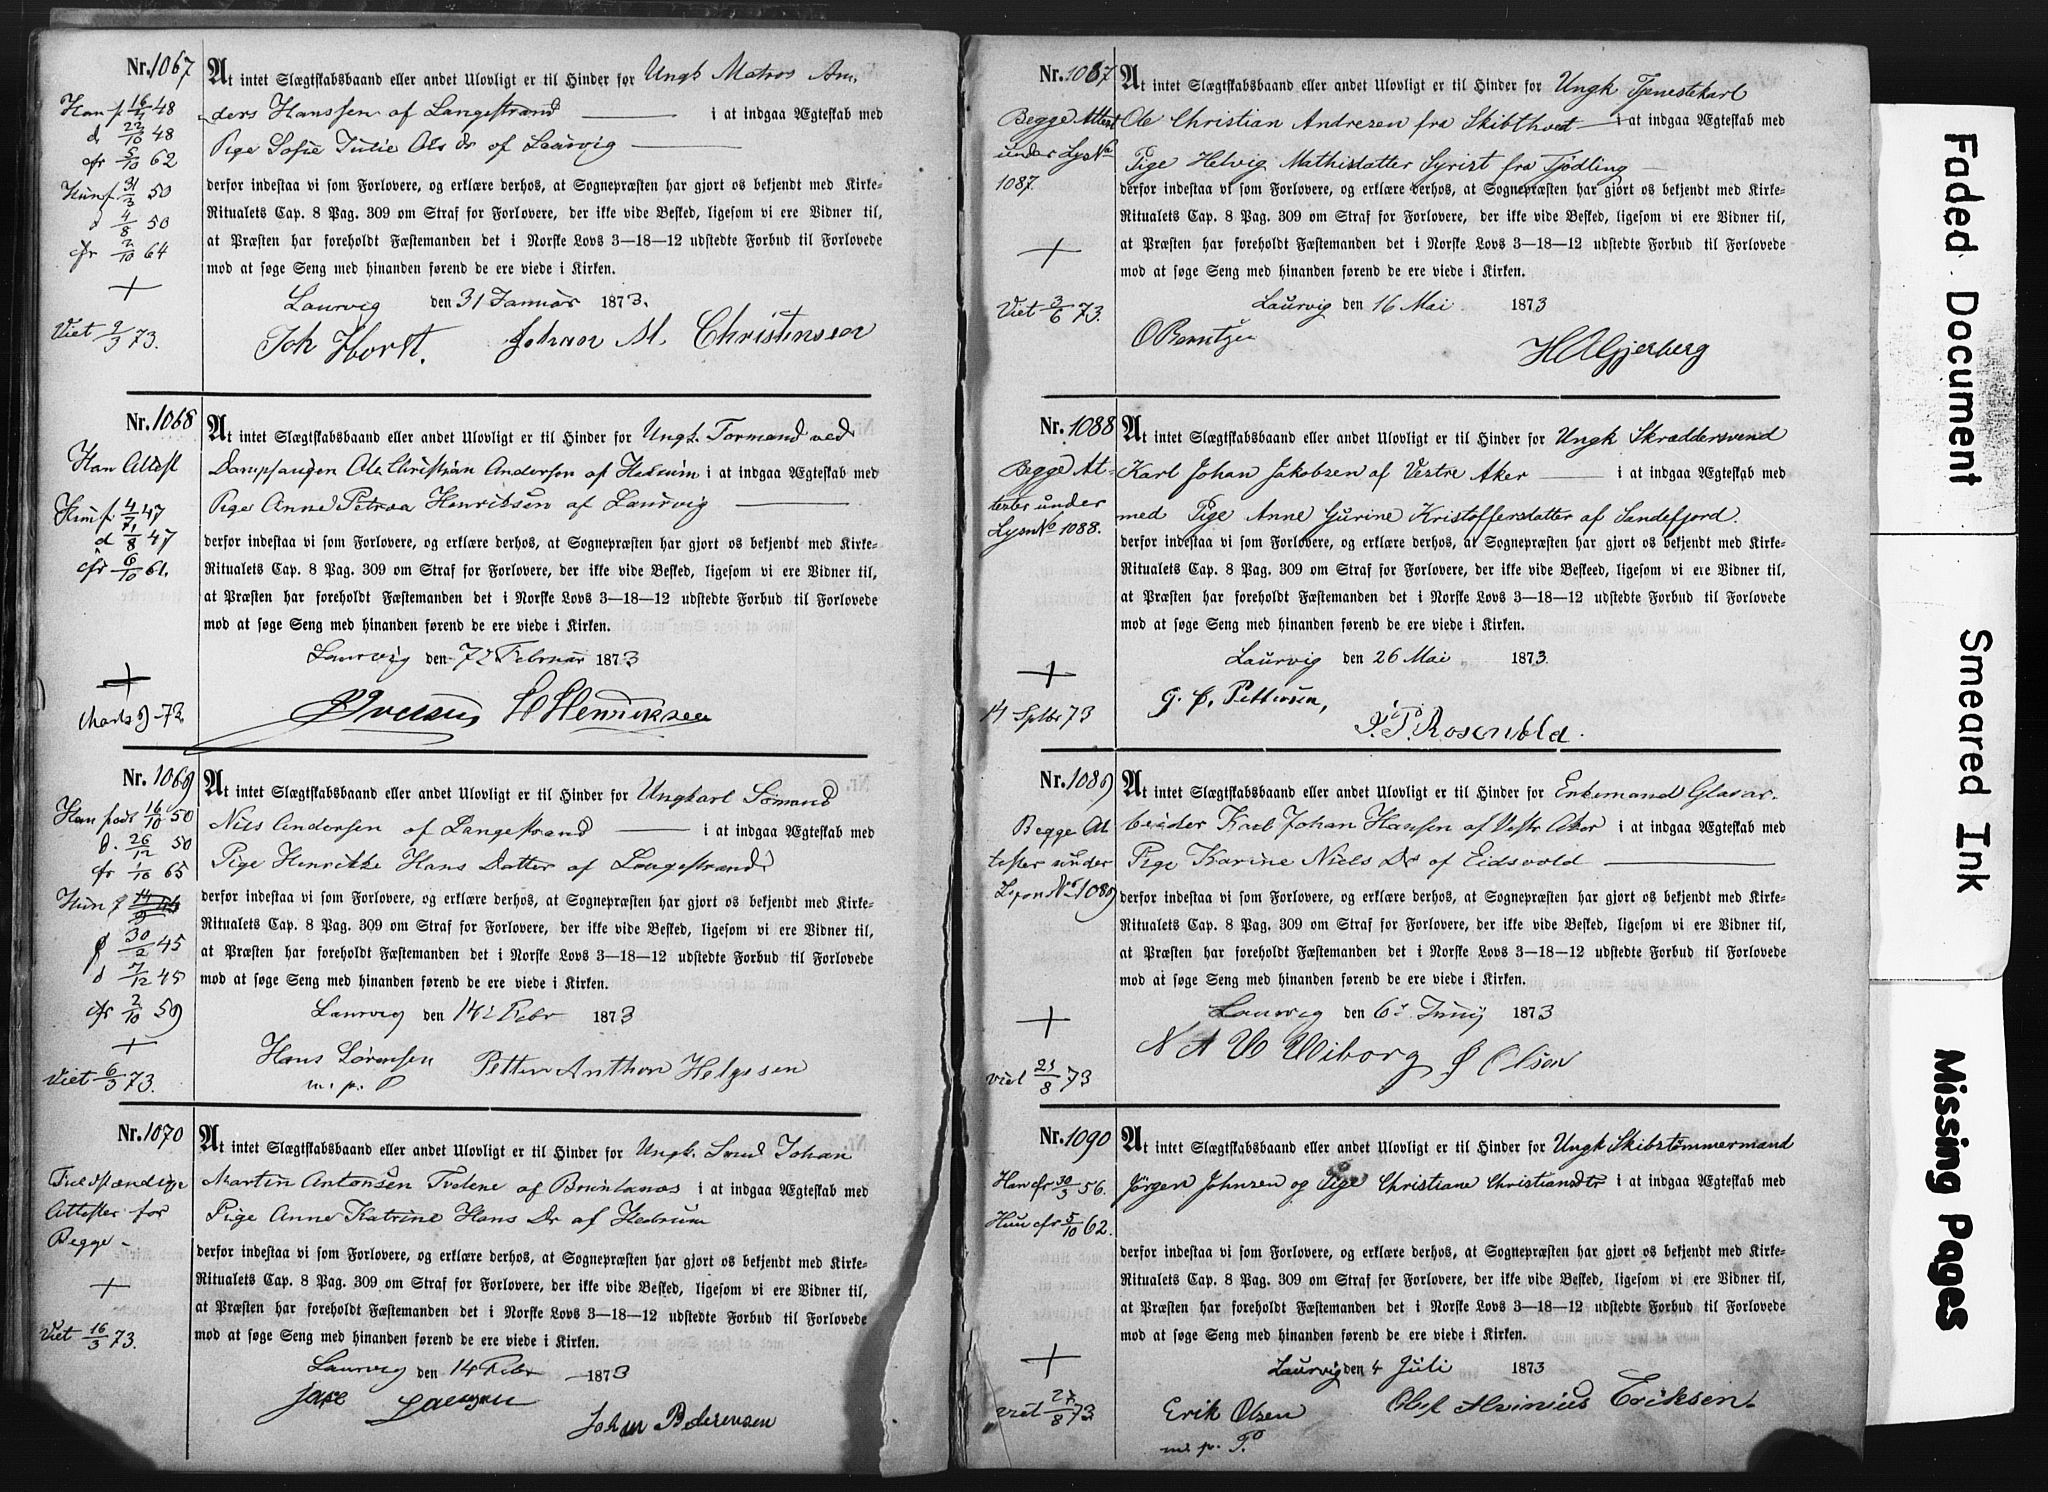 Nr. 1067
At intet Slægtskabsbaand eller andet Ulovligt er til Hinder for Ungk. Matros An-
ders Hanssen af Langestrand — i at indgaa Ægteskab med
Pige Sofie Julie Ols Dr af Laurvig —
derfor indestaa vi som Forlovere, og erklære derhos, at Sognepræsten har gjort os bekjendt med Kirke-
Ritualets Cap. 8 Pag. 309 om Straf for Forlovere, der ikke vide Besked, ligesom vi ere Vidner til,
at Præsten har foreholdt Fæstemanden det i Norske Lovs 3—18—12 udstedte Forbud til Forlovede
mod at søge Seng med hinanden førend de ere viede i Kirken.
Laurvig den 31 Januar 1873.
Joh Horst. Johan M. Christensen
Han f. 16/4 48
d 22/10 48
cfr 5/10 62
Hun f. 31/3 50
d 4/8 50
cfr 2/10 64
+
Viet 2/3 73.
Nr. 1068
At intet Slægtskabsbaand eller andet Ulovligt er til Hinder for Ungk. Formand ved
Dampsaugen Ole Christian Andersen af Hedrum i at indgaa Ægteskab med
Pige Anne Petrea Henriksen af Laurvig —
derfor indestaa vi som Forlovere, og erklære derhos, at Sognepræsten har gjort os bekjendt med Kirke-
Ritualets Cap. 8 Pag. 309 om Straf for Forlovere, der ikke vide Besked, ligesom vi ere Vidner til,
at Præsten har foreholdt Fæstemanden det i Norske Lovs 3—18—12 udstedte Forbud til Forlovede
mod at søge Seng med hinanden førend de ere viede i Kirken.
Laurvig den 7de Februar 1873
H Henriksen
Han Attest
Hun f. 4/7 47
d 1/8 47
cfr 6/10 61.
+
Nr. 1069
At intet Slægtskabsbaand eller andet Ulovligt er til Hinder for Ungkarl Sømand
Nils Andersen af Langestrand — i at indgaa Ægteskab med
Pige Henrikke Hans Datter af Langestrand
derfor indestaa vi som Forlovere, og erklære derhos, at Sognepræsten har gjort os bekjendt med Kirke-
Ritualets Cap. 8 Pag. 309 om Straf for Forlovere, der ikke vide Besked, ligesom vi ere Vidner til,
at Præsten har foreholdt Fæstemanden det i Norske Lovs 3—18—12 udstedte Forbud til Forlovede
mod at søge Seng med hinanden førend de ere viede i Kirken.
Laurvig den 14de Febr 1873
Hans Sørensen Petter Anthon Helgesen
m. p. P
Han født 16/10 50
d. 26/12 50
cfr 1/10 65
Hun f
f 30/2 45
d 7/12 45
cfr 2/10 59
+
Viet 6/3 73.
Nr. 1070
At intet Slægtskabsbaand eller andet Ulovligt er til Hinder for Ungk. Smed Johan
Martin Antonsen Tvetene af Brunlanæs i at indgaa Ægteskab med
Pige Anne Katrine Hans Dr af Hedrum
derfor indestaa vi som Forlovere, og erklære derhos, at Sognepræsten har gjort os bekjendt med Kirke-
Ritualets Cap. 8 Pag. 309 om Straf for Forlovere, der ikke vide Besked, ligesom vi ere Vidner til,
at Præsten har foreholdt Fæstemanden det i Norske Lovs 3—18—12 udstedte Forbud til Forlovede
mod at søge Seng med hinanden førend de ere viede i Kirken.
Laurvig den 14 Febr 1873
Johan Pedersen
Fuldstændige
Attester for
Begge —
+
Viet 16/3 73.
Nr. 1087
At intet Slægtskabsbaand eller andet Ulovligt er til Hinder for Ungk Tjenestekarl
Ole Christian Andresen fra Skibthvedt — i at indgaa Ægteskab med
Pige Helvig Mathisdatter Syrist fra Tjødling —
derfor indestaa vi som Forlovere, og erklære derhos, at Sognepræsten har gjort os bekjendt med Kirke-
Ritualets Cap. 8 Pag. 309 om Straf for Forlovere, der ikke vide Besked, ligesom vi ere Vidner til,
at Præsten har foreholdt Fæstemanden det i Norske Lovs 3—18—12 udstedte Forbud til Forlovede
mod at søge Seng med hinanden førend de ere viede i Kirken.
Laurvig den 16 Mai 1873
O Berntzen H A Gjerberg
Begge Attest
under Lys No
1087.
+
Viet 3/6 73.
Nr. 1088
At intet Slægtskabsbaand eller andet Ulovligt er til Hinder for Ungk Skræddersvend
Karl Johan Jakobsen af Vestre Aker — i at indgaa Ægteskab med
med Pige Anne Gurine Kristoffersdatter af Sandefjord.
derfor indestaa vi som Forlovere, og erklære derhos, at Sognepræsten har gjort os bekjendt med Kirke-
Ritualets Cap. 8 Pag. 309 om Straf for Forlovere, der ikke vide Beskeed, ligesom vi ere Vidner til,
at Præsten har foreholdt Fæstemanden det i Norske Lovs 3—18—12 udstedte Forbud til Forlovede
mod at søge Seng med hinanden førend de ere viede i Kirken.
Laurvig den 26 Mai 1873.
G. C. Pettersen, Rosenvold.
Begge At-
tester under
Lysn No 1088.
+
14 Sptbr 73
Nr. 1089
At intet Slægtskabsbaand eller andet Ulovligt er til Hinder for Enkemand Glasar-
beider Karl Johan Hansen af Vestr Aker i at indgaa Ægteskab med
Pige Karine Niels Dr af Eidsvold —
derfor indestaa vi som Forlovere, og erklære derhos, at Sognepræsten har gjort os bekjendt med Kirke-
Ritualets Cap. 8 Pag. 309 om Straf for Forlovere, der ikke vide Besked, ligesom vi ere Vidner til,
at Præsten har foreholdt Fæstemanden det i Norske Lovs 3—18—12 udstedte Forbud til Forlovede
mod at søge Seng med hinanden førend de ere viede i Kirken.
Laurvig den 6te Juny 1873
N A W Wiborg Ø Olsen
Begge At
tester under
Lysn No 1089
+
viet 21/8 73
Nr. 1090
At intet Slægtskabsbaand eller andet Ulovligt er til Hinder for Ungk Skibstømmermand
Jörgen Johnsen og Pige Christiane Christiansdtr i at indgaa Ægteskab med
derfor indestaa vi som Forlovere, og erklære derhos, at Sognepræsten har gjort os bekjendt med Kirke-
Ritualets Cap. 8 Pag. 309 om Straf for Forlovere, der ikke vide Besked, ligesom vi ere Vidner til,
at Præsten har foreholdt Fæstemanden det i Norske Lovs 3—18—12 udstedte Forbud til Forlovede
mod at søge Seng med hinanden førend de ere viede i Kirken.
Laurvig den 4 Juli 1873
Erik Olsen Olef Alvinius Eriksen
m. p. P.
Han cfr 30/3 56.
Hun cfr 5/10 62.
+
viet 27/8 73
Faded Document
Smeared Ink
Missing Pages